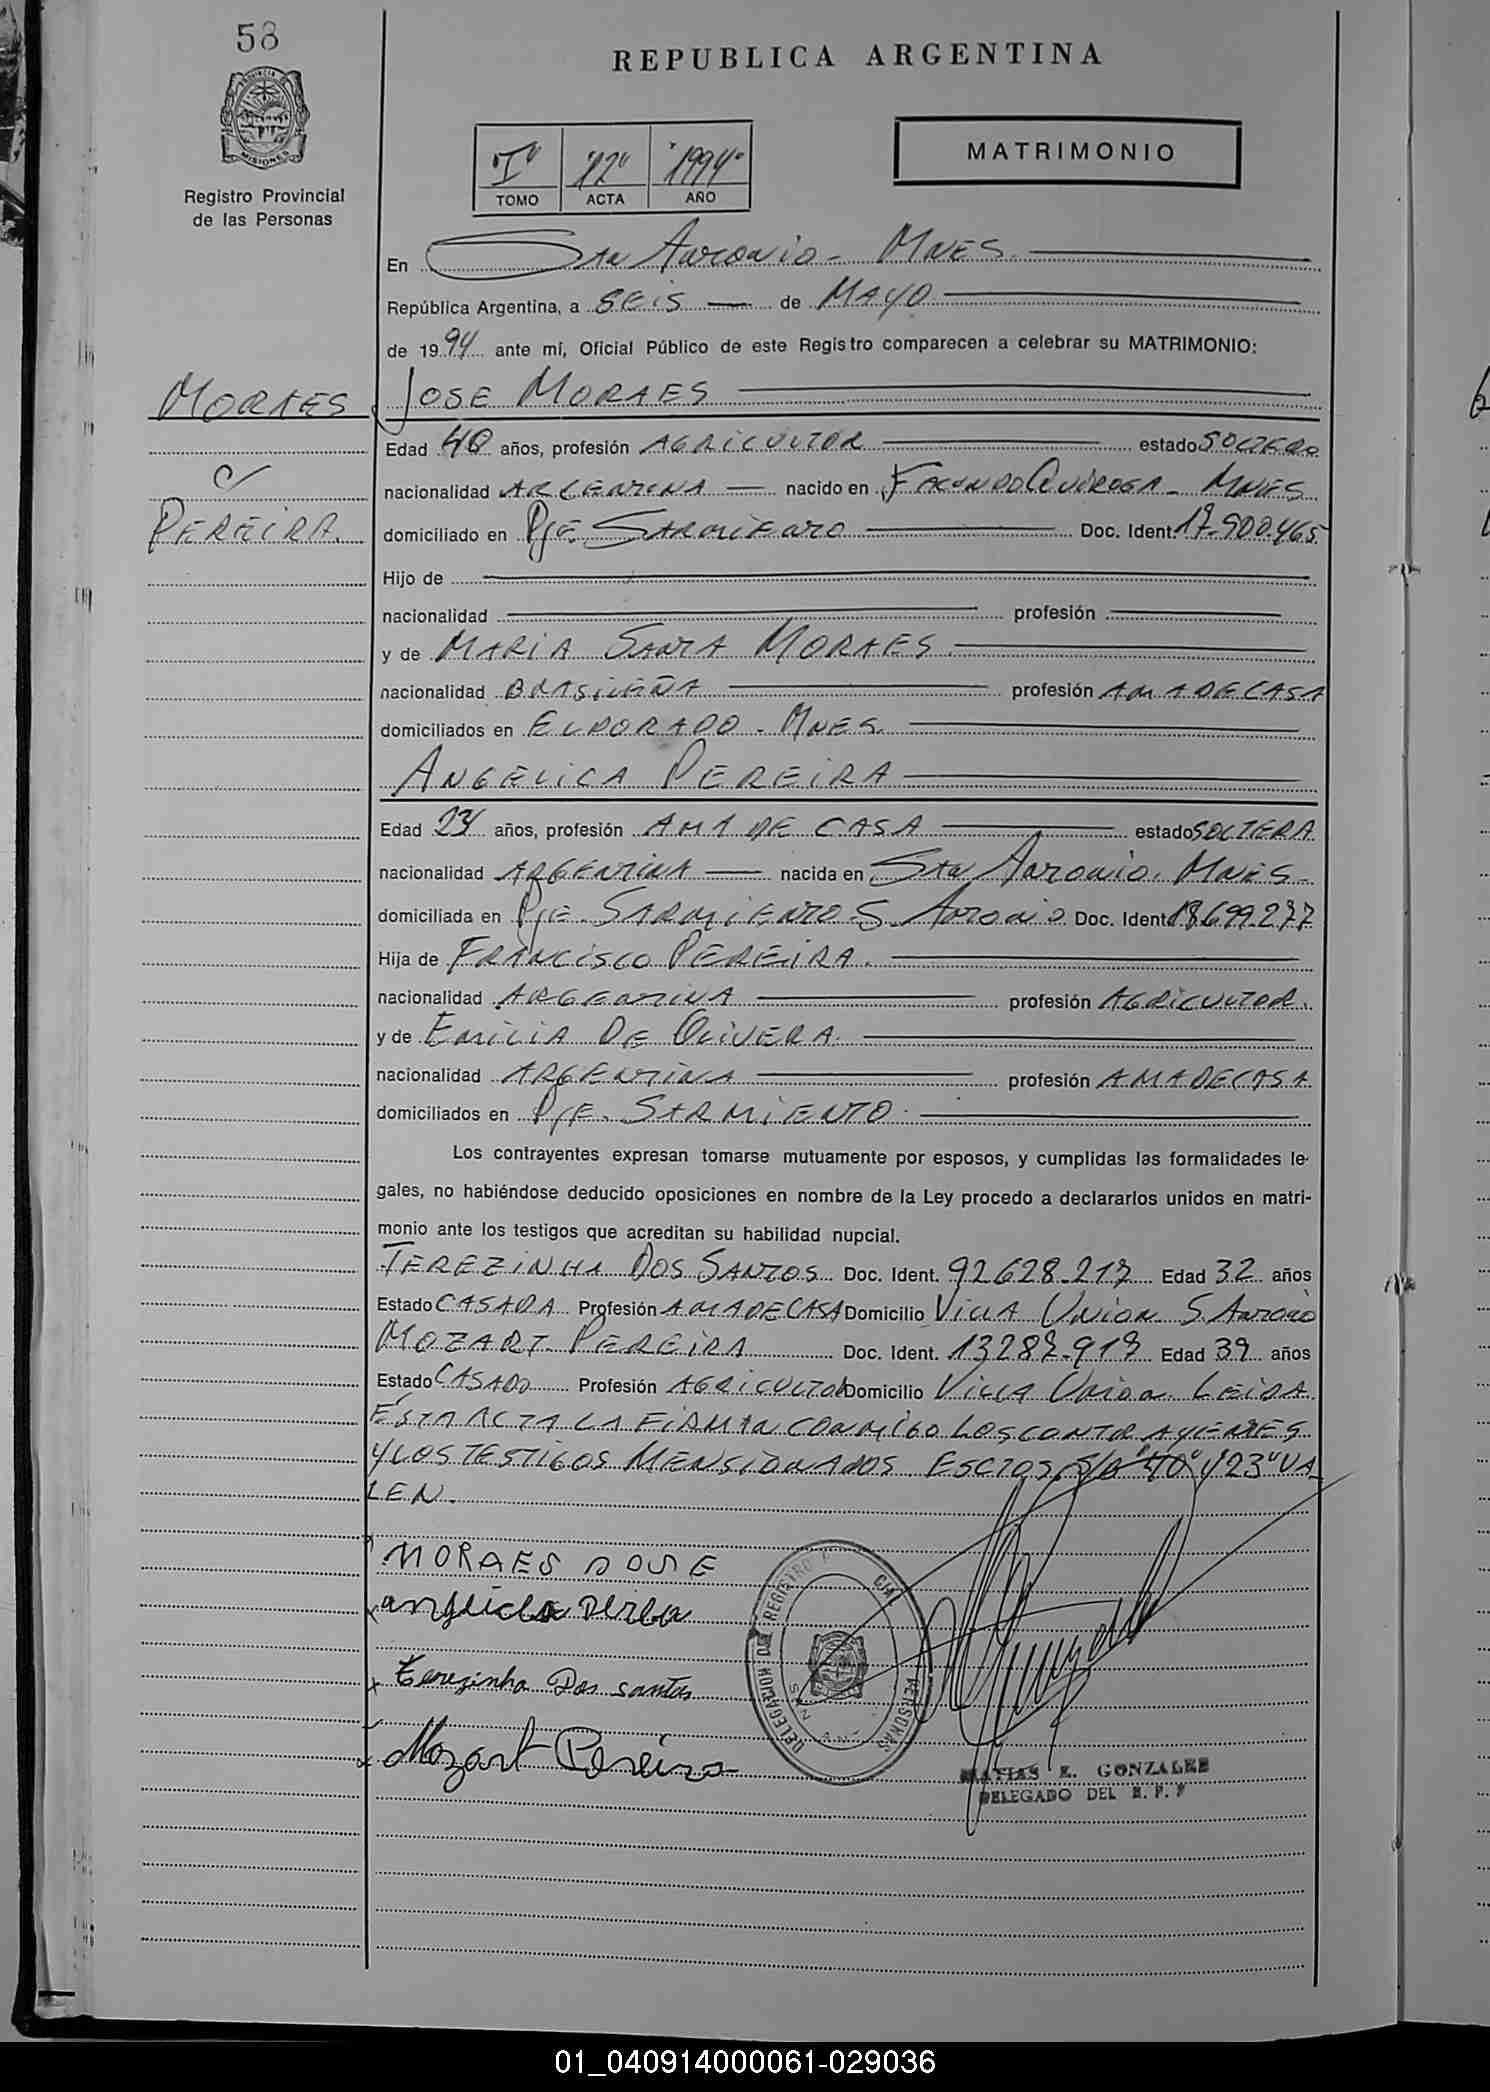 58
REPUBLICA ARGENTINA
PROVINCIA DE
MISIONES
Registro Provincial
de las Personas
"I" "12" "1994"
TOMO ACTA AÑO
MATRIMONIO
En San Antonio - Mnes.
República Argentina, a SEIS de MAYO
de 1994 ante mí, Oficial Público de este Registro comparecen a celebrar su MATRIMONIO:
MORAES
JOSE MORAES
Edad 40 años, profesión AGRICULTOR estado SOLTERO
c/
nacionalidad ARGENTINA nacido en FACUNDO QUIROGA - MNES
PEREIRA.
domiciliado en Pje. SARMIENTO Doc. Ident. 17.900.465
Hijo de
nacionalidad profesión
y de MARIA SANTA MORAES.
nacionalidad BRASILEÑA profesión AMA DE CASA
domiciliados en ELDORADO - MNES.
ANGELICA PEREIRA
Edad 23 años, profesión AMA DE CASA estado SOLTERA
nacionalidad ARGENTINA nacida en San Antonio. MNES-
domiciliada en Pje. SARMIENTO S. Antonio Doc. Ident. 18.699.277
Hija de FRANCISCO PEREIRA.
nacionalidad ARGENTINA profesión AGRICULTOR.
y de EMILIA DE OLIVERA.
nacionalidad ARGENTINA profesión AMA DE CASA
domiciliados en Pje. SARMIENTO.
Los contrayentes expresan tomarse mutuamente por esposos, y cumplidas las formalidades le-
gales, no habiéndose deducido oposiciones en nombre de la Ley procedo a declararlos unidos en matri-
monio ante los testigos que acreditan su habilidad nupcial.
TEREZINHA DOS SANTOS Doc. Ident. 92628.217 Edad 32 años
Estado CASADA Profesión AMA DE CASA Domicilio VILLA UNION S. Antonio
MOZART PEREIRA Doc. Ident. 13287.917 Edad 39 años
Estado CASADO Profesión AGRICULTOR Domicilio VILLA UNION LEIDA
ESTA ACTA LA FIRMAN CONMIGO LOS CONTRAYENTES
Y LOS TESTIGOS MENSIONADOS ESCTOS S/R "40" Y "23" VA-
LEN.
MORAES JOSE
Terezinha Dos santos
Mozart Pereira
DELEGACION DE REGISTRO PERSONAS
MATIAS E. GONZALEZ
DELEGADO DEL R. P. P
01_040914000061-029036